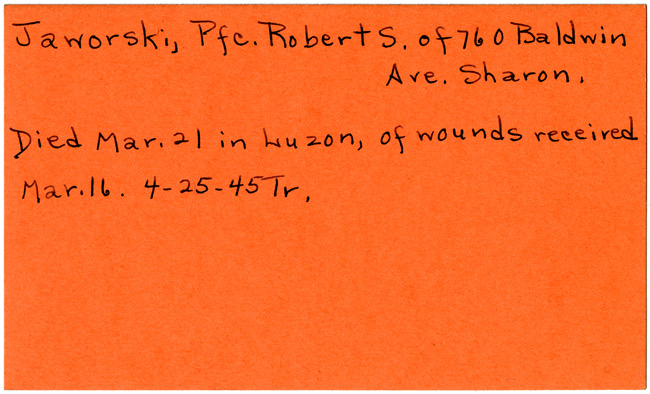 Jaworski, Pfc. Robert S. of 760 Baldwin
Ave. Sharon.
Died Mar. 21 in Luzon, of wounds received
Mar. 16. 4-25-45 Tr.